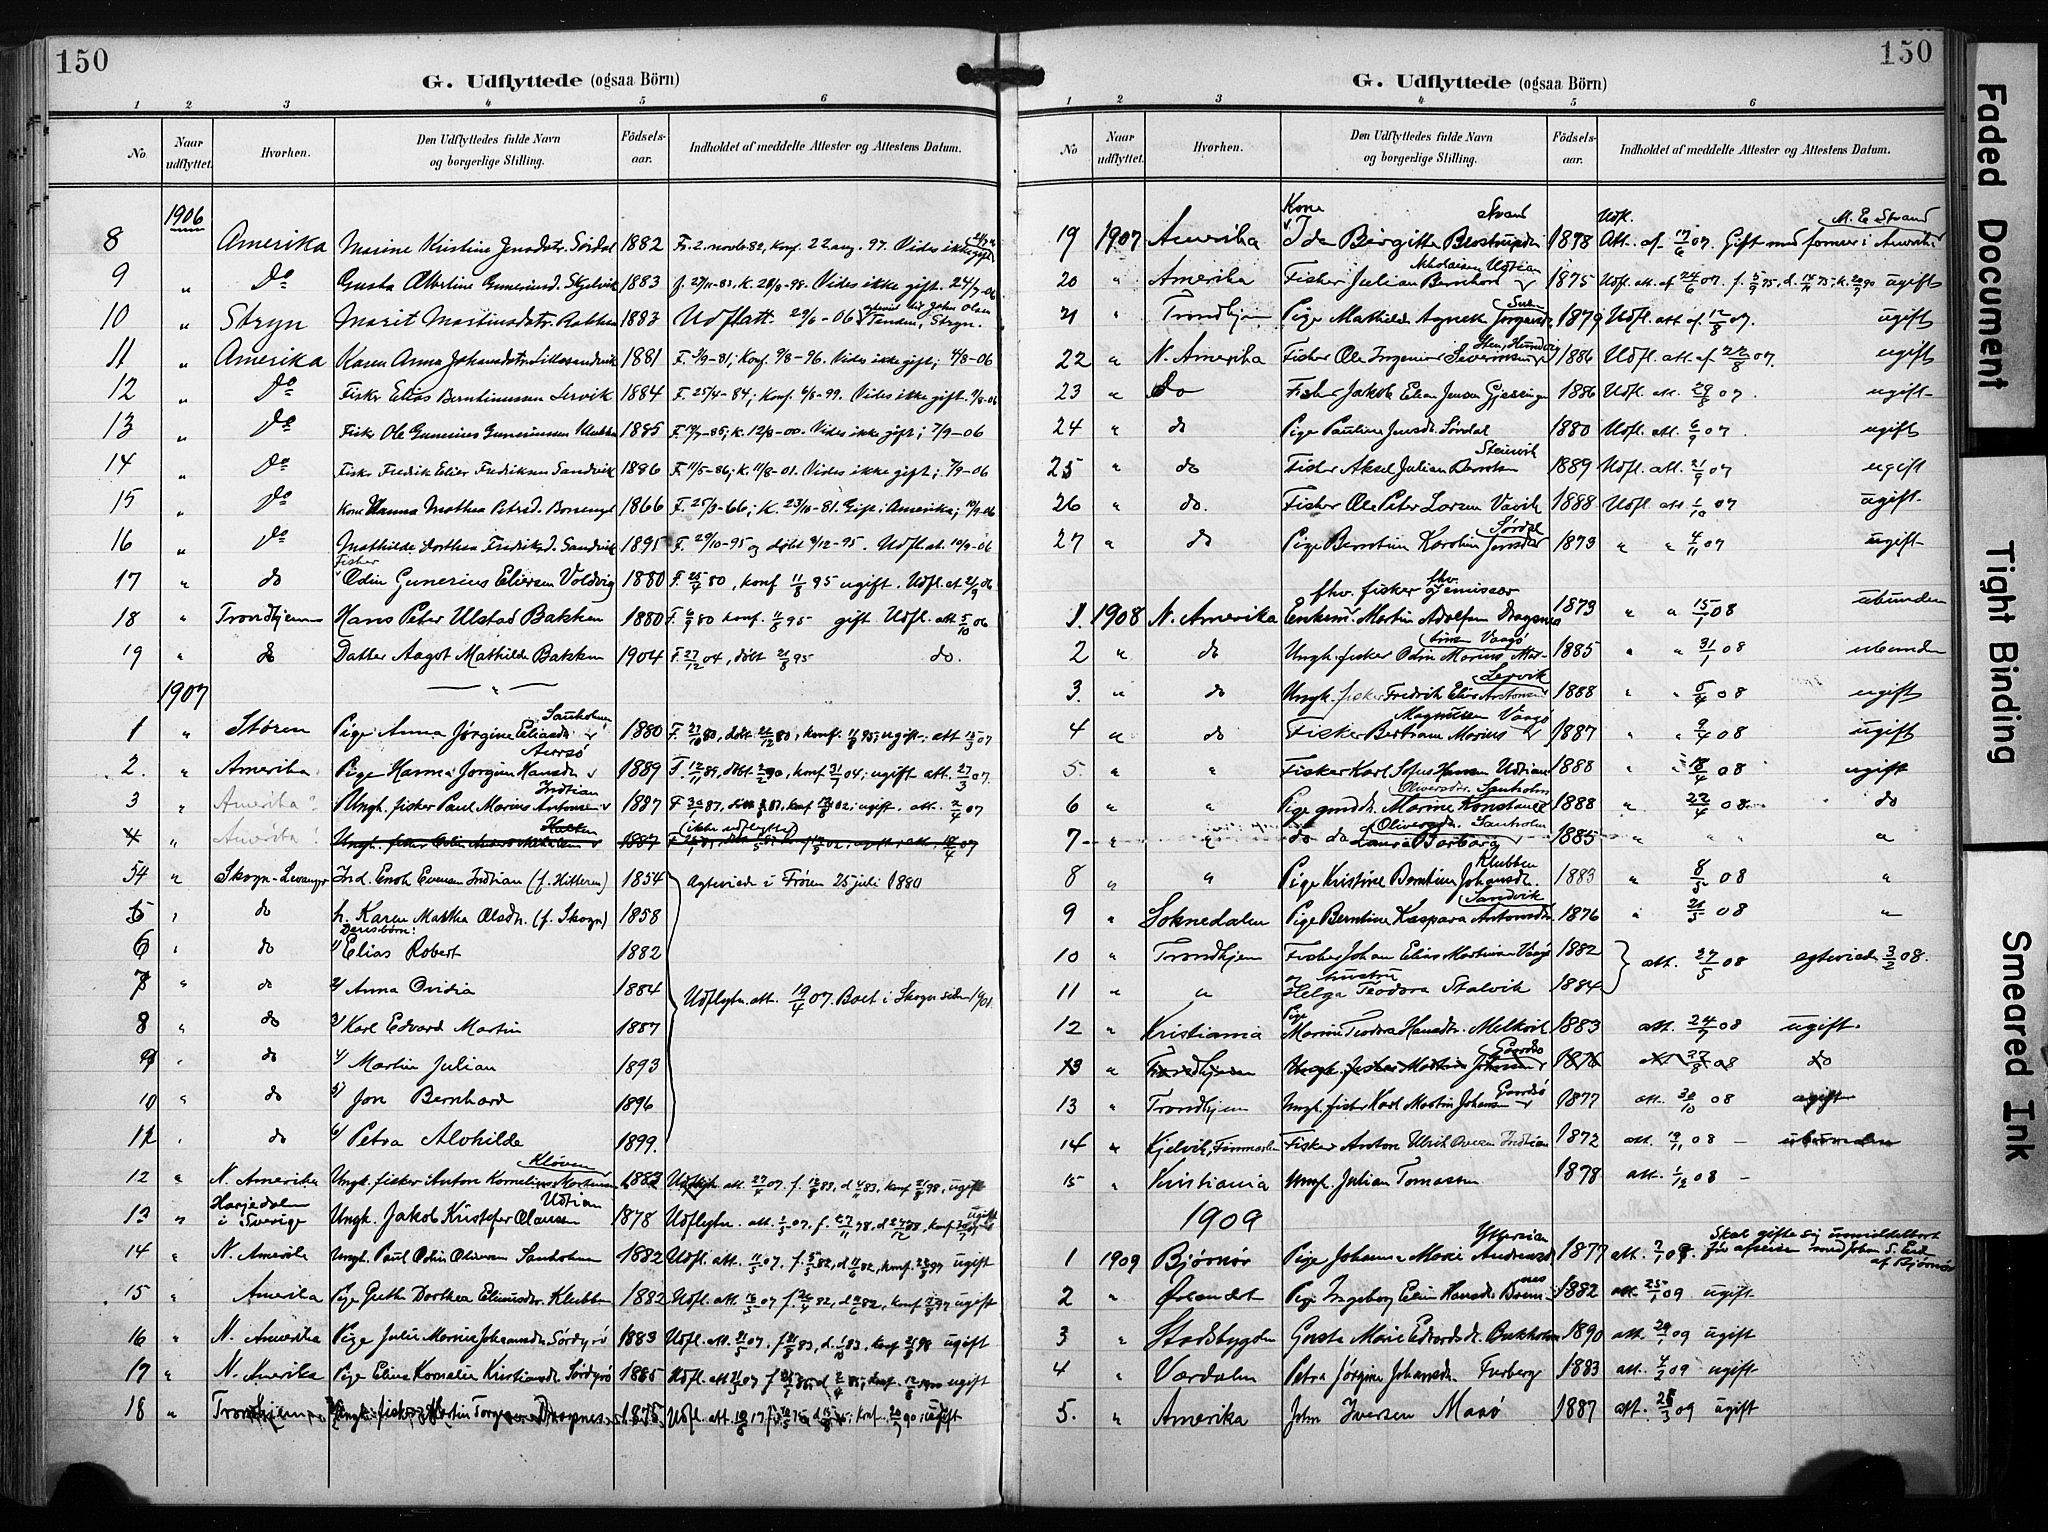 150
G. Udflyttede (ogsaa Börn)
1 2 3 4 5 6
No. Naar udflyttet. Hvorhen. Den Udflyttedes fulde Navn og borgerlige Stilling. Födsels-aar. Indholdet af meddelte Attester og Attestens Datum.
1906
8 Amerika Marine Kristine Jensdatr. Sørdal 1882 F. 2. novbr. 82, konf. 22 aug. 97. Vides ikke gift
9 " Do Gusta Albertine Guneriusd. Skjelvik 1883 f. 27/11-83, k. 28/8-98. Vides ikke gift. 24/7-06
10 " Stryn Marit Martinusdatr. Rabben 1883 Udflatt. 29/6-06 John Olsen Tenden, Stryn.
11 " Amerika Karen Anna Johansdatr. Lillesandvik 1881 F. 3/9-81; Konf. 9/8-96. Vides ikke gift; 4/8-06
12 " Do Fisker Elias Berntinussen Lervik 1884 F. 25/4-84; Konf. 6/8-99. Vides ikke gift. 9/8-06
13 " Do Fisker Ole Gunerius Gunerinssen Klubben 1885 F. 19/7-85; k. 12/8-00. Vides ikke gift; 7/9-06
14 " Do Fisker Fredrik Elier Fredriksen Sandvik 1886 F. 11/5-86; k. 11/8-01. Vides ikke gift; 7/9-06
15 " Do Kone Hanna Mathea Petersd. 1866 F. 25/3-66; K. 23/10-81. Gift i Amerika; 10/9-06
16 " Do Mathilde Dorthea Fredriksd. Sandvik 1895 F. 29/10-95 og døbt 8/12-95. Udfl.at. 10/9-06
17 " do Fisker Odin Gunerius Eliersen Voldvig 1880 F. 25/4 80, konf 11/8 95 ugift. Udfl. at 21/9 06
18 " Trondhjem Hans Peter Ulstad Bakken 1880 F. 6/9 80 konf. 11/8 95 gift Udfl. att 5/10 06
19 " do Datter Aagot Mathilde Bakken 1904 F. 27/12 04, døbt 21/8 95 do.
1907
1 " Støren Pige Anna Jørgine Eliasdr. Sauholmen 1880 F. 27/10 80, døbt 26/12 80, konf. 11/8 95; ugift; att 15/3 07
2. " Amerika. Pige Hanna Jørgine Hansdr. Aursø 1889 F. 12/11 89, døbt 2/2 90, konf 31/7 04; ugift att. 27/3 07.
3 " Amerika? Ungk. fisker Paul Marius Antonsen Indtian 1887 ugift. att. 2/4 07
4 " Amerika? Ungk. fisker Odin 1887 (ikke udflyttet)
54 " Skogn-Levanger Ind. Enok Evensen Indtian (f. Hitteren) 1854 Ægteviede i Frøien 25 juli 1880
5 " do h. Karen Martha Olsdr. (f. Skogn) 1858
Deresbørn:
6 " do 1) Elias Robert 1882
7 " do 2) Anna Ovidia 1884 Udflytn. att. 19/4 07. Boet i Skogn siden 1901.
8 " do 3) Karl Edvard Martin 1887
9 " do 4) Martin Julian 1893
10 " do 5) Jon Bernhard 1896
11 " do 6) Petra Alvhilde 1899.
12 " N. Amerika Ungk. fisker Anton Kornelius Mortensen Kløven 1883 att. 27/4 07. ugift
13 " Herjedalen i Sverige Ungk. Jakob Kristofer Olaussen Udtian 1878 Udflytn. att. ugift
14 " N. Amerika Ungk. Paul Odin Oliversen Sauholmen 1882 Udfl. att. 11/5 07. ugift
15 " Amerika Pige Grethe Dorthea Eliasdtr. Klubben 1882 Udfl. att. 16/5 07 ugift
16 " N. Amerika Pige Julie Marie Johansdr. Sørdyrø 1883 Udfl. att. 21/5 07. ugift
17 " N. Amerika Pige Elise Kornelie Kristiansdr. Sørdyrø 1885 Udfl. att. ugift
18 " Trondhjem Ungk. fisker Martin Dragsnes 1875 Udfl. att. ugift
150
G. Udflyttede (ogsaa Börn)
1 2 3 4 5 6
No Naar udflyttet. Hvorhen. Den Udflyttedes fulde Navn og borgerlige Stilling. Födsels-aar. Indholdet af meddelte Attester og Attestens Datum.
19 1907 Amerika Kone Ida Birgitte Strand 1878 Udfl. Att. af 17/6 07. Gift med M. E. Strand i Amerika
20 " Amerika Fisker Julian Bernhard Nikolaisen Udtian 1875 Udfl. att. af 24/6 07. ugift
21 " Trondhjem Pige Mathilde Agneth Jørgensdr. 1879 Udfl. att. af. 12/8 07. ugift
22 " N. Amerika Fisker Ole Ingemar Severinsen 1886 Udfl. att. af 22/8 07. ugift
23 " do Fisker Jakob Elian Jensen Gjessingen 1886 Udfl. att. 29/8 07. ugift
24 " do Pige Pauline Jensdr. Sørdal 1880 Udfl. att. 6/9 07. ugift
25 " do Fisker Aksel Julian Berntsen Stensvik 1889 Udfl. att. 21/9 07 ugift
26 " do. Fisker Ole Peter Larsen Vavik 1888 Udfl. att 1/10 07 ugift
27 " do Pige Berntine Karoline Jensdtr Sørdal 1873 " " 4/11 07 ugift
1. 1908 N. Amerika fhv. fisker og fhv. emissær Enkem. Martin Adolfsen Dragsnes 1873 " " 15/1 08 ubunden
2 " do Ungk. fisker Odin Marius Mar- tinsen Vaagø 1885 " " 31/1 08 ubunden
3. " do Ungk. fisker Fredrik Elis Arntonsen Lervik 1888 " " 5/4 08 ugift
4 " do Fisker Bertram Marius Magnussen Vaagø 1887 " " 9/4 08 ugift
5. " " Fisker Karl Sofus Hansen Udtian 1888 " " 18/4 08 ugift
6 " " Pige gmddr. Marine Konstanse Oliversdr. Sauholm 1888 " 22/4 08 " do
7 " " do do Laura Barborg Oliversdr. Sauholm 1885 " " " "
8 " " Pige Kristine Berntine Johansdr. Klubben 1883 " 8/5 08 "
9 " Soknedalen Pige Berntine Kaspara Antonsdr. Sandvik 1876 " 21/5 08 "
10 " Trondhjem Fisker Johan Elias Martinsen Vaagø 1882 att. 27/5 08 egteviede 3/2 08.
11 " " og hustru Helga Teodora Stalvik 1884
12 " Kristiania Pige Marine Teodora Hansdtr. Melkvik 1883 att. 24/7 08 ugift.
13 " Trondhjem Ungk. fisker Martin Johansen Gaardsø 1876 att 27/8 08 do
13 " Trondhjem Ungk. fisker Karl Martin Johansen Gaardsø 1877 att. 30/10 08 ugift
14 " Kjelvik, Finmarken Fisker Anton Ulrik Ovesen Indtian 1872 att. 19/11 08 – ubunden
15 " Kristiania Ungk. Julian Tomassen 1878 att. 1/12 08 –
1909
1 1909 Bjørnør Pige Johanna Marie Andreasdr. Yttersian 1877 att. Skal gifte sig umiddelbart før afreisen med Johan S. Eid af Bjørnør
2 " Ørlandet Pige Ingeborg Elise Hansdr. 1882 att. 25/1 09 ugift
3 " Stadsbygden Gusta Marie Edvardsdr. Bekkholmen 1890 att. 29/1 09 ugift
4 " Værdalen Petra Jørgine Johansdr. Furberg 1883 att. 4/3 09 ugift
5. " Amerika John Iversen Masø 1887 att. 26/3 09 ugift
Faded Document
Tight Binding
Smeared Ink